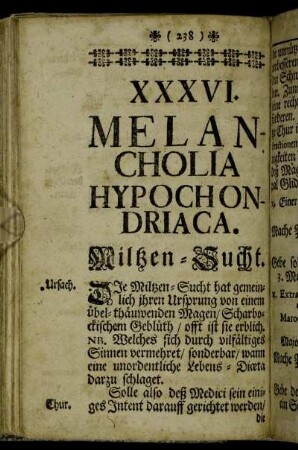 ( 238 )
XXXVI.
MELAN-
CHOLIA
HYPOCHON-
DRIACA.
Miltzen-Sucht.
Ursach.
DJe Miltzen-Sucht hat gemein-
lich ihren Ursprung von einem
übel-thäuwenden Magen/ Scharbo-
ckischem Geblüth/ offt ist sie erblich.
NB. Welches sich durch vilfältiges
Sinnen vermehret/ sonderbar/ wann
eine unordentliche Lebens-Diæta
darzu schlaget.
Solle also deß Medici sein eini-
Chur.
ges Intent darauff gerichtet werden/
die